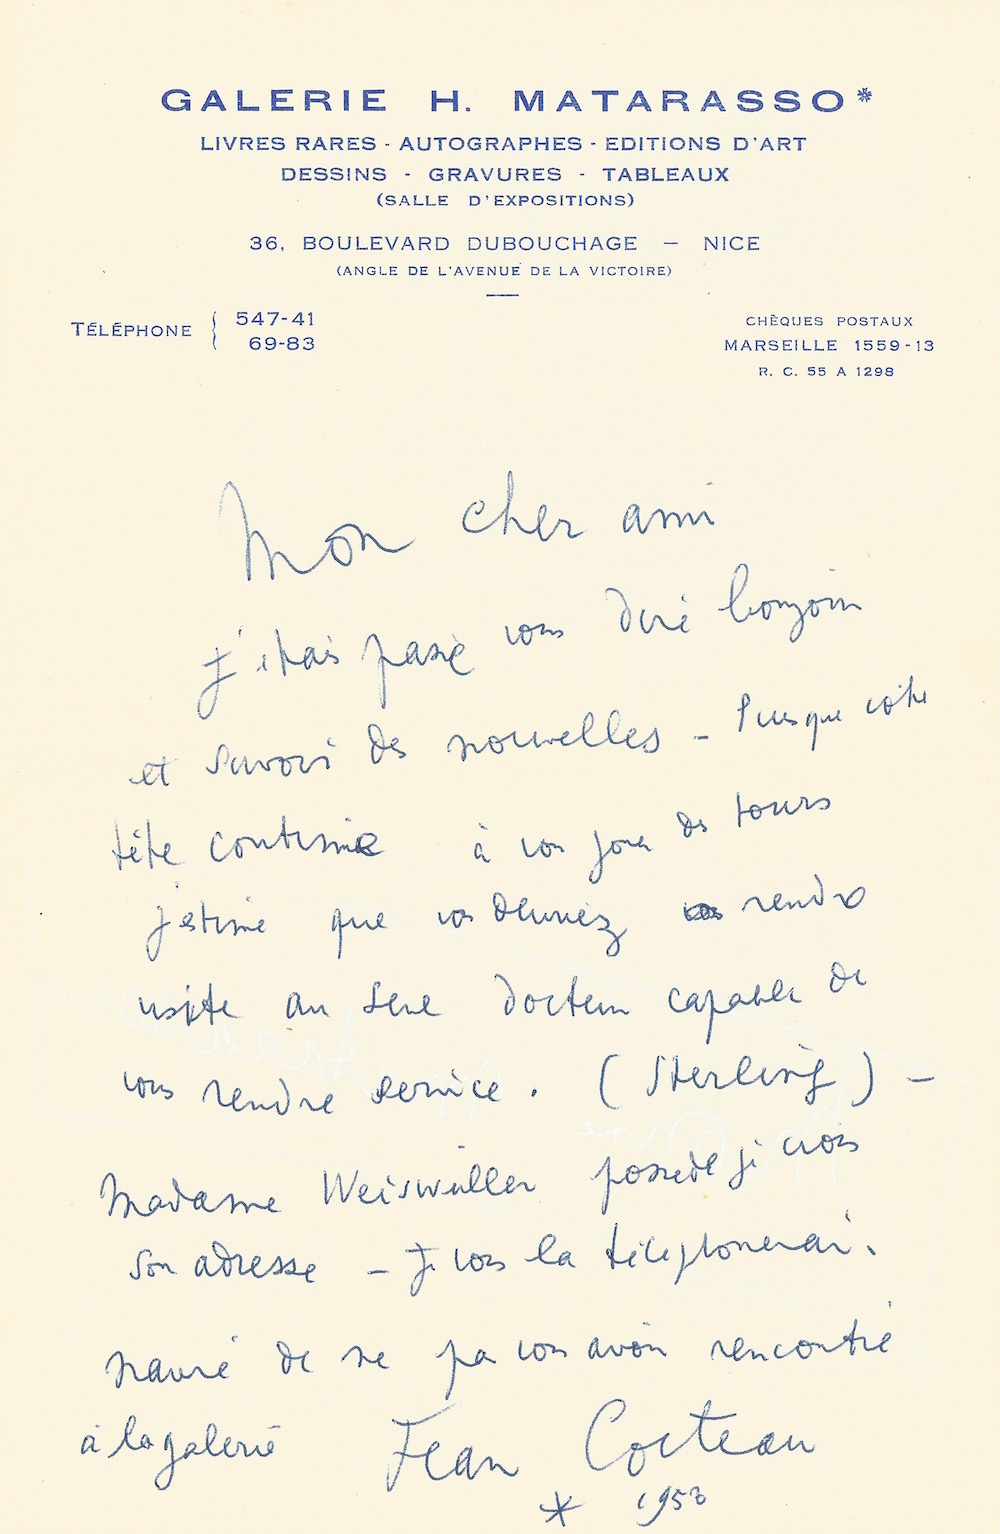 GALERIE H. MATARASSO*
LIVRES RARES - AUTOGRAPHES - EDITIONS D'ART
DESSINS - GRAVURES - TABLEAUX
(SALLE D'EXPOSITIONS)
36, BOULEVARD DUBOUCHAGE — NICE
(ANGLE DE L'AVENUE DE LA VICTOIRE)
TÉLÉPHONE { 547-41
69-83
CHÈQUES POSTAUX
MARSEILLE 1559-13
R. C. 55 A 1298
Mon cher ami
j'étais passé vous dire bonjour
et savoir des nouvelles – Puisque votre
tête continue à vous jouer des tours
j'estime que vous devriez rendre
visite au seul docteur capable de
vous rendre service. (Sterling) –
Madame Weisweiller possède je crois
son adresse – Je vous la téléphonerai.
Navré de ne pas vous avoir rencontré
à la galerie Jean Cocteau
*